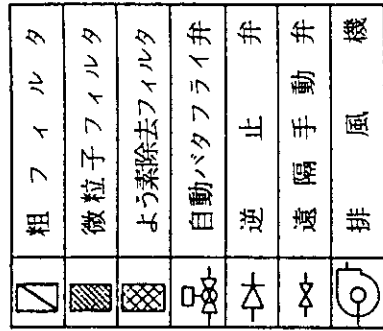 粗フィルタ
微粒子フィルタ
よう素除去フィルタ
自動バタフライ弁
逆止弁
遠隔手動弁
排風機